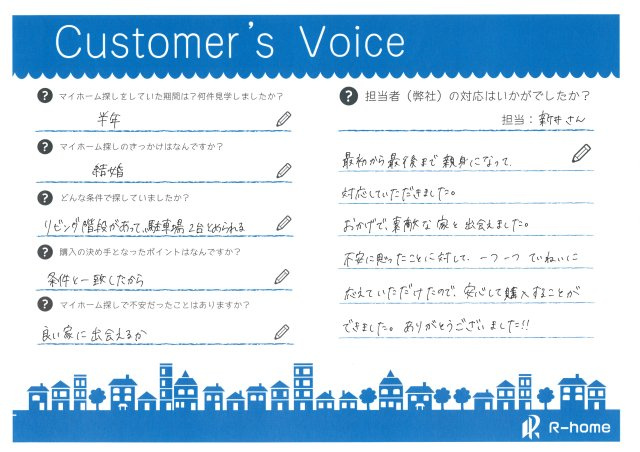 Customer's Voice
? マイホーム探しをしていた期間は？何件見学しましたか？
半年
? マイホーム探しのきっかけはなんですか？
結婚
? どんな条件で探していましたか？
リビング階段があって、駐車場2台とめられる
? 購入の決め手となったポイントはなんですか？
条件と一致したから
? マイホーム探しで不安だったことはありますか？
良い家に出会えるか
? 担当者（弊社）の対応はいかがでしたか？
担当：新井さん
最初から最後まで親身になって
対応していただきました。
おかげで、素敵な家と出会えました。
不安に思ったことに対して、一つ一つていねいに
応えていただけたので、安心して購入することが
できました。ありがとうございました!!
R-home